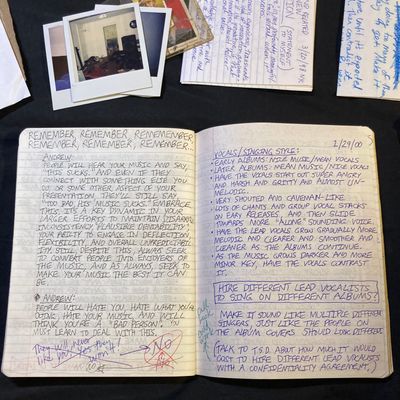 REMEMBER, REMEMBER, REMEMEMBER
REMEMBER, REMEMBER, REMEMBER.
ANDREW:
PEOPLE WILL HEAR YOUR MUSIC AND SAY,
"THIS SUCKS." AND EVEN IF THEY
CONNECT WITH SOMETHING ELSE YOU
DO, OR SOME OTHER ASPECT OF YOUR
PRESENTATION, THEY'LL STILL SAY
"TOO BAD, HIS MUSIC SUCKS." EMBRACE
THIS. IT'S A KEY DYNAMIC IN YOUR
LARGER EFFORTS TO MAINTAIN DISTANCE,
INCONSISTENCY, PLAUSIBLE DENIABILITY,
YOUR ABILITY TO ENGAGE IN DEFLECTION,
FLEXIBILITY, AND OVERALL UNPREDICTABILITY.
STILL, DESPITE THIS, ALWAYS SEEK
TO CONVERT PEOPLE INTO ENJOYERS
OF THE MUSIC, AND AS ALWAYS, SEEK TO
MAKE YOUR MUSIC THE BEST IT CAN
BE.
ANDREW:
PEOPLE WILL HATE YOU, HATE WHAT YOU'RE
DOING, HATE YOUR MUSIC, AND WILL
THINK YOU'RE A "BAD PERSON." YOU
MUST LEARN TO DEAL WITH THIS.
They will never
like you! Yes they
won't!
NO
1/29/00
VOCALS/SINGING STYLE:
• EARLY ALBUMS: NICE MUSIC/MEAN VOCALS
• LATER ALBUMS: MEAN MUSIC/NICE VOCALS
• HAVE THE VOCALS START OUT SUPER ANGRY
AND HARSH AND GRITTY AND ALMOST UN-
MELODIC.
• VERY SHOUTED AND CAVEMAN-LIKE
• LOTS OF CHANTS AND GROUP VOCAL STACKS
ON EARLY RELEASES, AND THEN GLIDE
TOWARDS MORE "ALONE" SOUNDING VOICE.
• HAVE THE LEAD VOCALS GROW GRADUALLY MORE
MELODIC AND CLEARER AND SMOOTHER AND
CLEANER AS THE ALBUMS CONTINUE.
• AS THE MUSIC GROWS DARKER AND MORE
MINOR KEY, HAVE THE VOCALS CONTRAST
IT.
HIRE DIFFERENT LEAD VOCALISTS
TO SING ON DIFFERENT ALBUMS?
MAKE IT SOUND LIKE MULTIPLE DIFFERENT
SINGERS, JUST LIKE THE PEOPLE ON
THE ALBUM COVERS SHOULD LOOK DIFFERENT.
(TALK TO T.S.D. ABOUT HOW MUCH IT WOULD
COST TO HIRE DIFFERENT LEAD VOCALISTS
WITH A CONFIDENTIALITY AGREEMENT.)